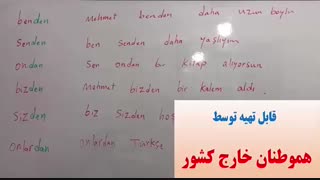 benden Mehmet benden daha uzun boylu
Senden ben senden daha yaşlıyım
ondan Sen ondan bir kitap alıyorsun
bizden Mehmet bizden bir kalem aldı
Sizden biz Sizden
onlardan onlardan Türkçe
قابل تهیه توسط
هموطنان خارج کشور